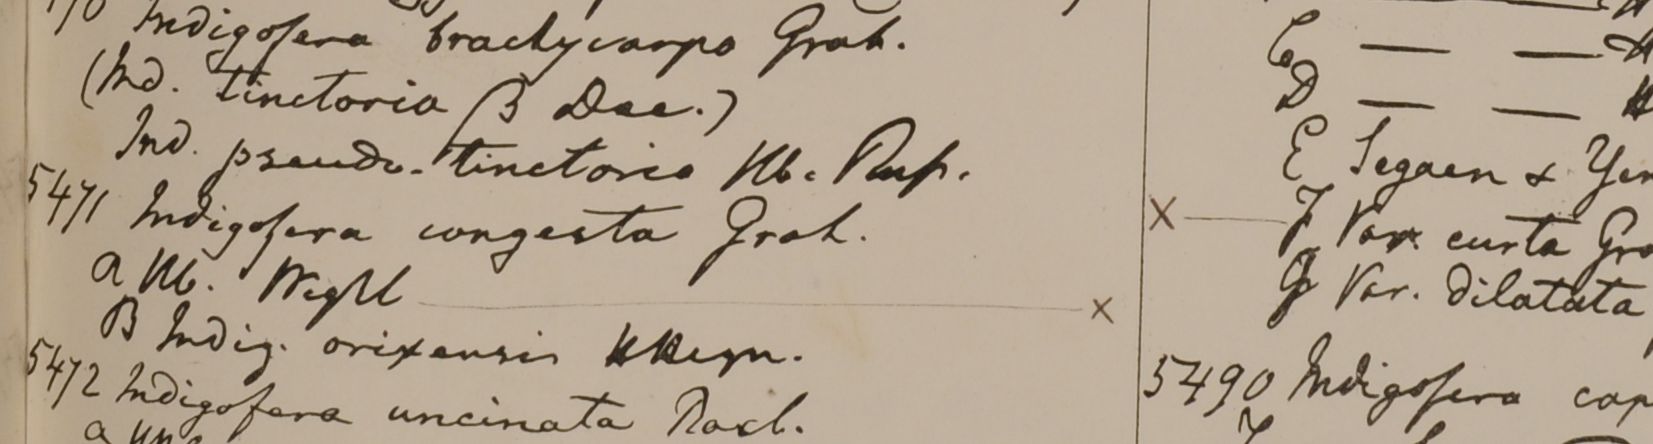 Indigofera brachycarpa Grah.
(Ind. tinctoria β Dec.)
Ind. pseudo-tinctoria Hb.
5471 Indigofera congesta Grah.
a Hb. Wight
B Indig. orixensis
5472 Indigofera uncinata Roxb.
a
C — —
D — —
E Segaen &
F Var. curta
G Var. dilatata
5490 Indigofera